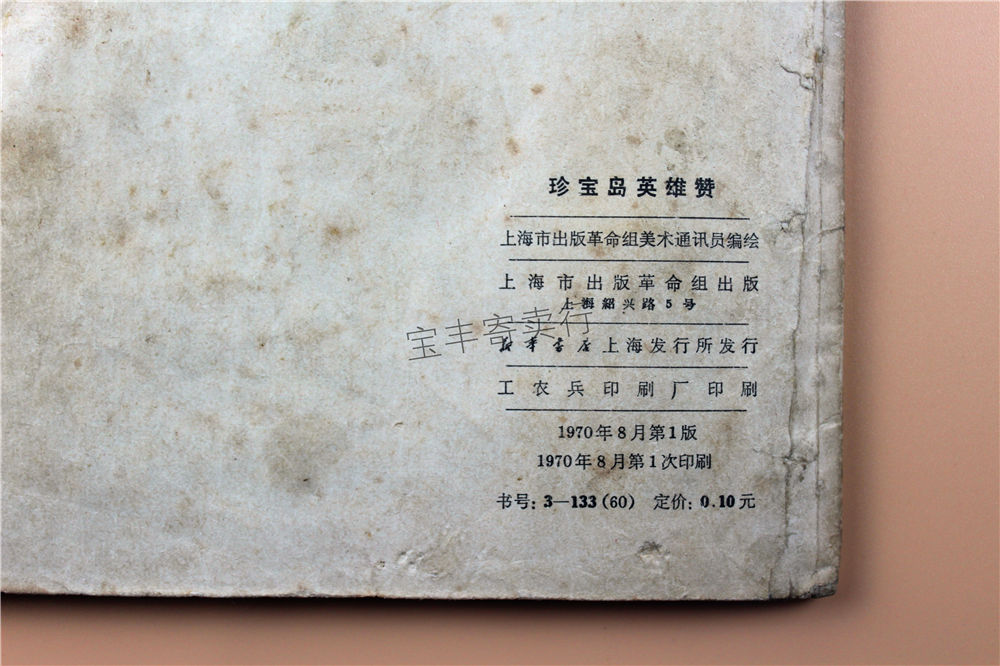 珍宝岛英雄赞
上海市出版革命组美术通讯员编绘
上海市出版革命组出版
上海紹兴路5号
新华书店上海发行所发行
工农兵印刷厂印刷
1970年8月第1版
1970年8月第1次印刷
书号: 3—133(60) 定价: 0.10元
宝丰寄卖行